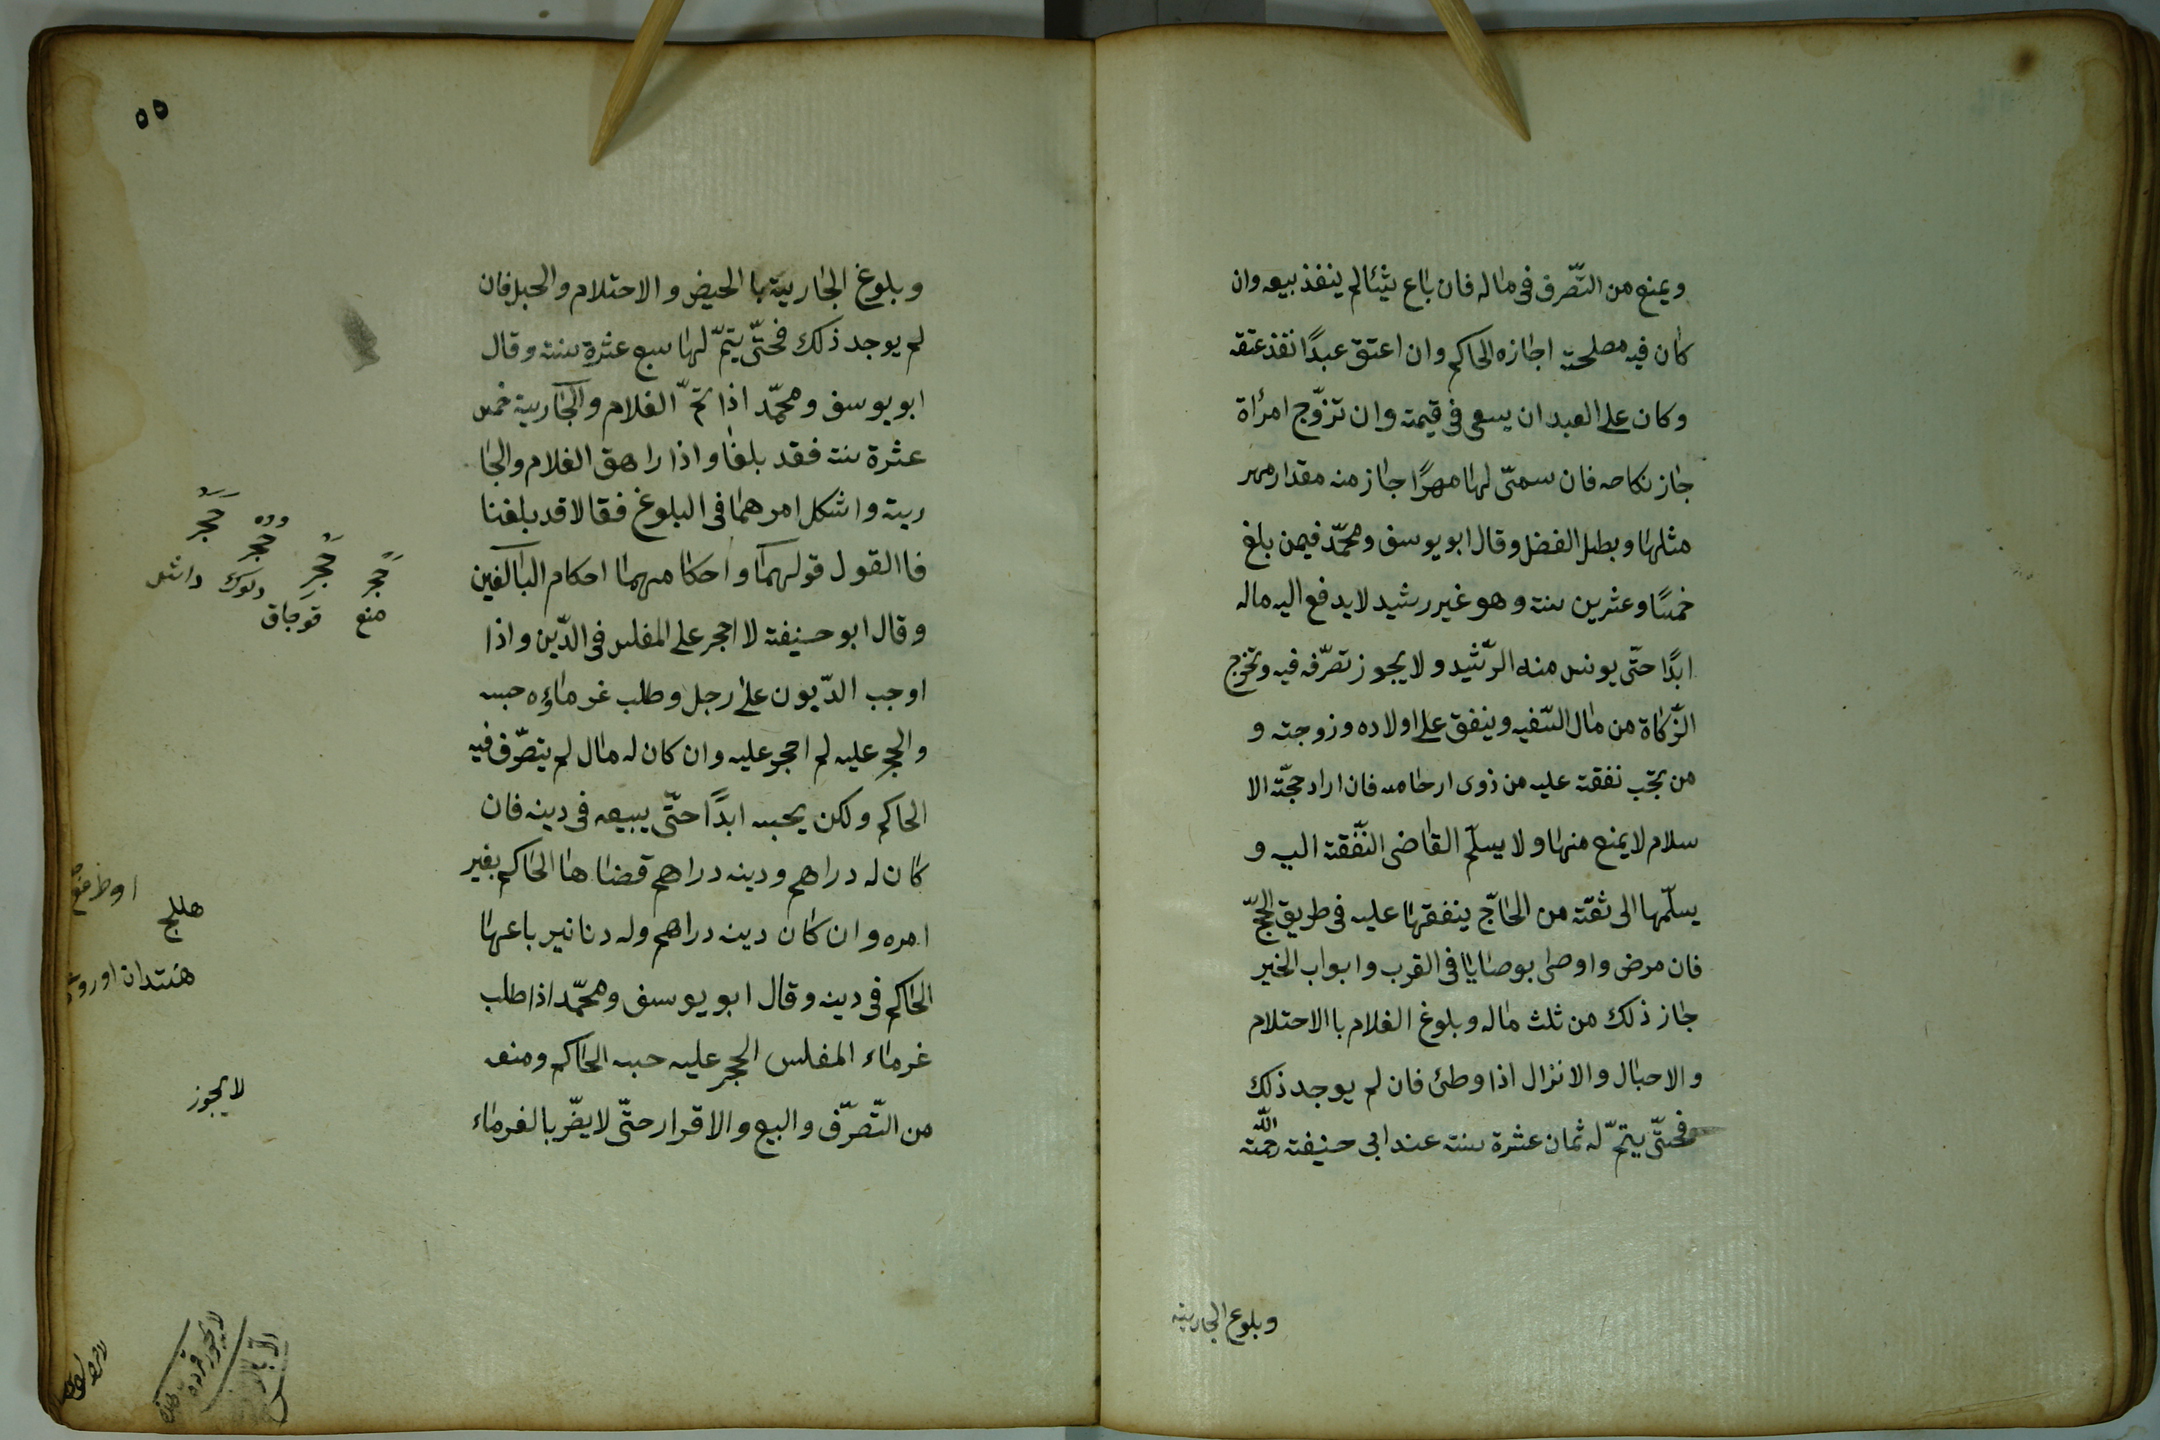 ويمنع من التّصّرف فى ماله فان باع شيئا لم ينفذ بيعه وان
كان فيه مصلحة اجازه الحاكم وان اعتق عبدًا نفذ عتقه
وكان على العبد ان يسعى فى قيمته وان تزوّج امرأة
جاز نكاحه فان سمّى لها مهرًا جاز منه مقدار مهر
مثلها وبطل الفضل وقال ابو يوسف ومحمّد فيمن بلغ
خمسًا وعشرين سنة وهو غير رشيد لا يدفع اليه ماله
ابدًا حتّى يونس منه الرّشيد ولا يجوز تصّرفه فيه وتخرج
الزّكاة من مال السّفيه وينفق على اولاده وزوجته و
من تجب نفقة عليه من ذوى ارحامه فان اراد حجّة الا
سلام لا يمنع منها ولا يسلّم القاضى النّفقة اليه و
يسلّمها الى ثقة من الحاجّ ينفقها عليه فى طريق الحجّ
فان مرض واوصى بوصايا فى القرب وابواب الخير
جاز ذلك من ثلث ماله وبلوغ الغلام باالاحتلام
والاحبال والانزال اذا وطئ فان لم يوجد ذلك
فحتّى يتمّ له ثمان عشرة سنة عند ابى حنيفة رحمة الله
وبلوغ الجارية
٥٥
وبلوغ الجارية باالحيض والاحتلام والحبل فان
لم يوجد ذلك فحتّى يتمّ لها سبع عشرة سنة وقال
ابو يوسف ومحمّد اذا تمّ الغلام والجارية خمس
عشرة سنة فقد بلغا واذا راهق الغلام والجا
رية واشكل امرهما فى البلوغ فقالا قد بلغنا
فاالقول قولهما واحكامهما احكام البالغين
وقال ابو حنيفة لا احجر على المفلس فى الدّين واذا
اوجب الدّيون على رجل وطلب غرماؤه حبسه
والحجر عليه لم احجر عليه وان كان له مال لم يتصّرف فيه
الحاكم ولكن يحبسه ابدًا حتّى يبيعه فى دينه فان
كان له دراهم ودينه دراهم قضاها الحاكم بغير
امره وان كان دينه دراهم وله دنانير باعها
الحاكم فى دينه وقال ابو يوسف ومحمّد اذا طلب
غرماء المفلس الحجر عليه حبسه الحاكم ومنعه
من التّصرّف والبيع والاقرار حتّى لا يضّر بالغرماء
حجر حجر حجر حجر
منع قوجاق داش
هللج
لا يجوز
لا يجوز